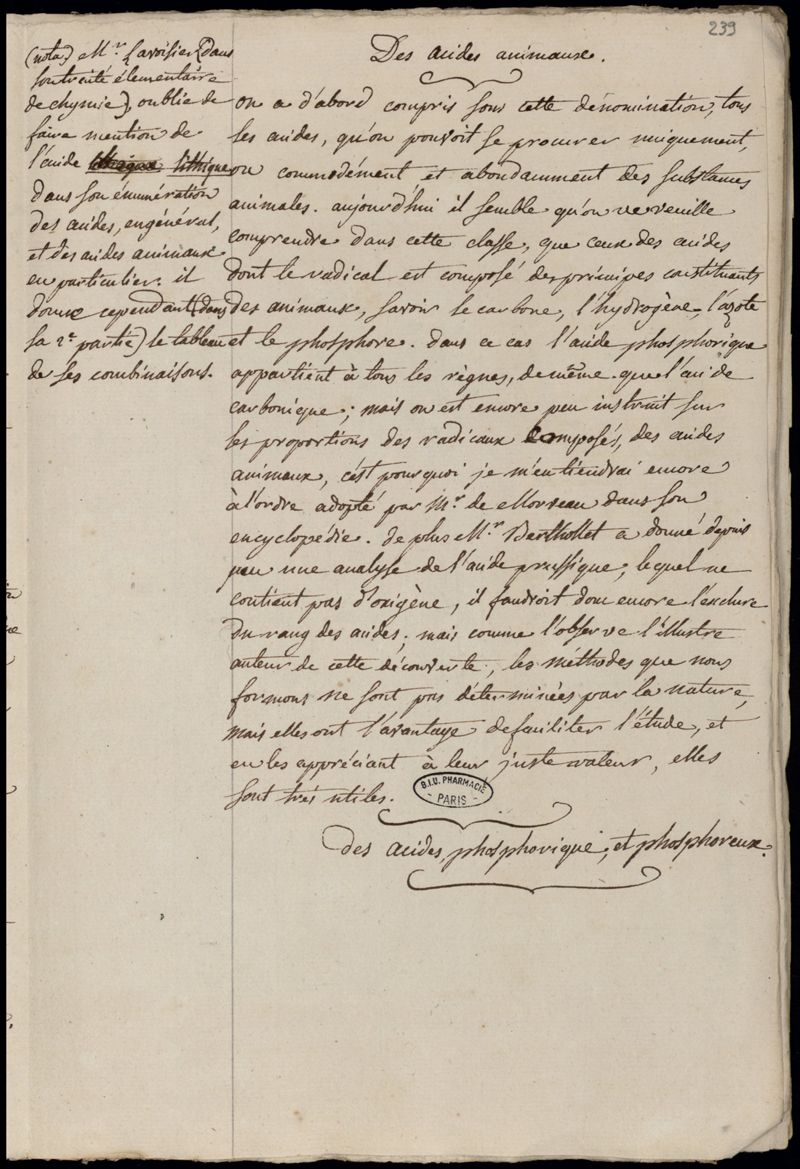 239
Des acides animaux.
(nota) Mr. Lavoisier (dans
son traité élémentaire
de chymie), oublie de
faire mention de
l'acide lithique
dans son énumération
des acides, en général,
et des acides animaux
en particulier. il
donne cependant (dans
sa 2e. partie) le tableau
de ses combinaisons.
on a d'abord compris sous cette dénomination, tous
les acides, qu'on pouvoit se procurer uniquement,
ou commodément et abondamment des substances
animales. aujourd'hui il semble qu'on ne veuille
comprendre dans cette classe, que ceux des acides
dont le radical est composé des principes constituants
des animaux, savoir le carbone, l'hydrogène, l'azote
et le phosphore. dans ce cas l'acide phosphorique
appartient à tous les règnes, de même que l'acide
carbonique; mais on est encore peu instruit sur
les proportions des radicaux composés, des acides
animaux, c'est pourquoi je m'en tiendrai encore
à l'ordre adopté par Mr. de Morveau dans son
encyclopédie. de plus Mr. Berthollet a donné depuis
peu une analyse de l'acide prussique, lequel ne
contient pas d'oxigène, il faudroit donc encore l'exclure
du rang des acides; mais comme l'observe l'illustre
auteur de cette découverte, les méthodes que nous
formons ne sont pas déterminées par la nature,
mais elles ont l'avantage de faciliter l'étude, et
en les appréciant à leur juste valeur, elles
sont très utiles.
B.I.U. PHARMACIE
- PARIS -
Des acides phosphorique, et phosphoreux.